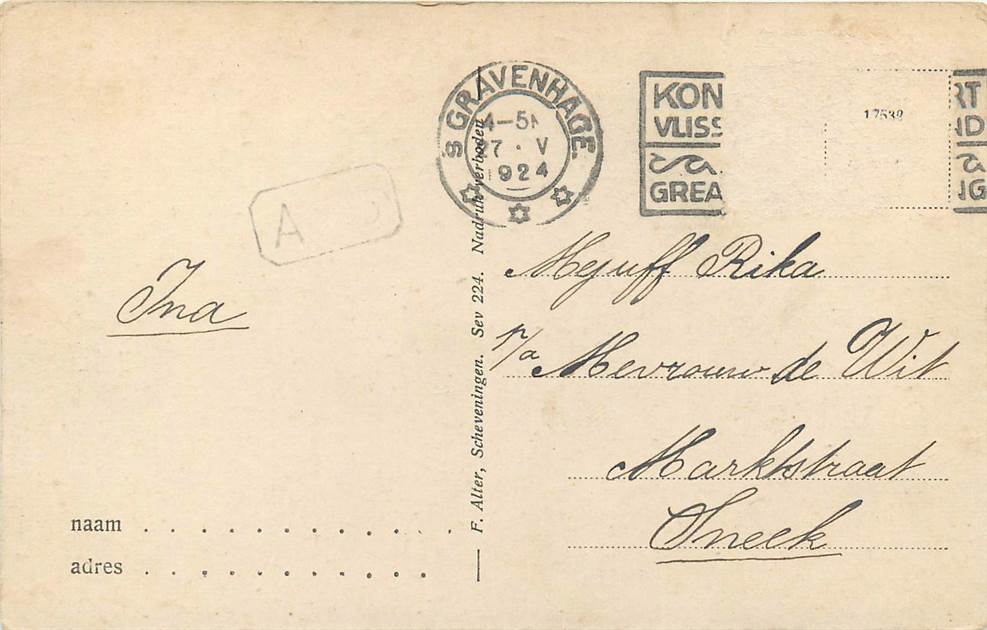 'S GRAVENHAGE.
4-5N
27 · V
1924
KON
VLISS
GREA
RT
ND
NG
17538
A
Ina
Mejuff Rika
p/a Mevrouw de Wit
Marktstraat
Sneek
naam
adres
F. Alter, Scheveningen. Sev 224. Nadruk verboden